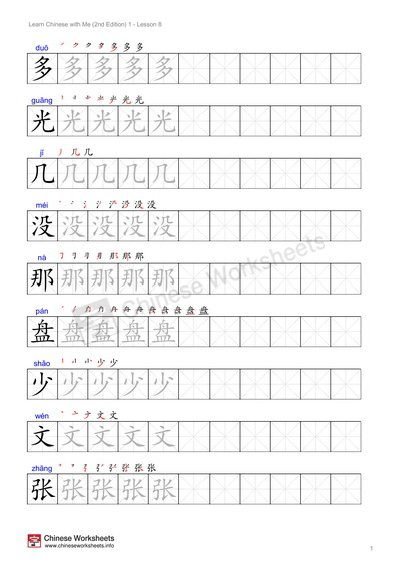 Learn Chinese with Me (2nd Edition) 1 - Lesson 8
duō
多 多 多 多 多
guāng
光 光 光 光 光
jǐ
几 几 几 几 几
méi
没 没 没 没 没
nà
那 那 那 那 那
pán
盘 盘 盘 盘 盘
shǎo
少 少 少 少 少
wén
文 文 文 文 文
zhāng
张 张 张 张 张
Chinese Worksheets
Chinese Worksheets
www.chineseworksheets.info
1